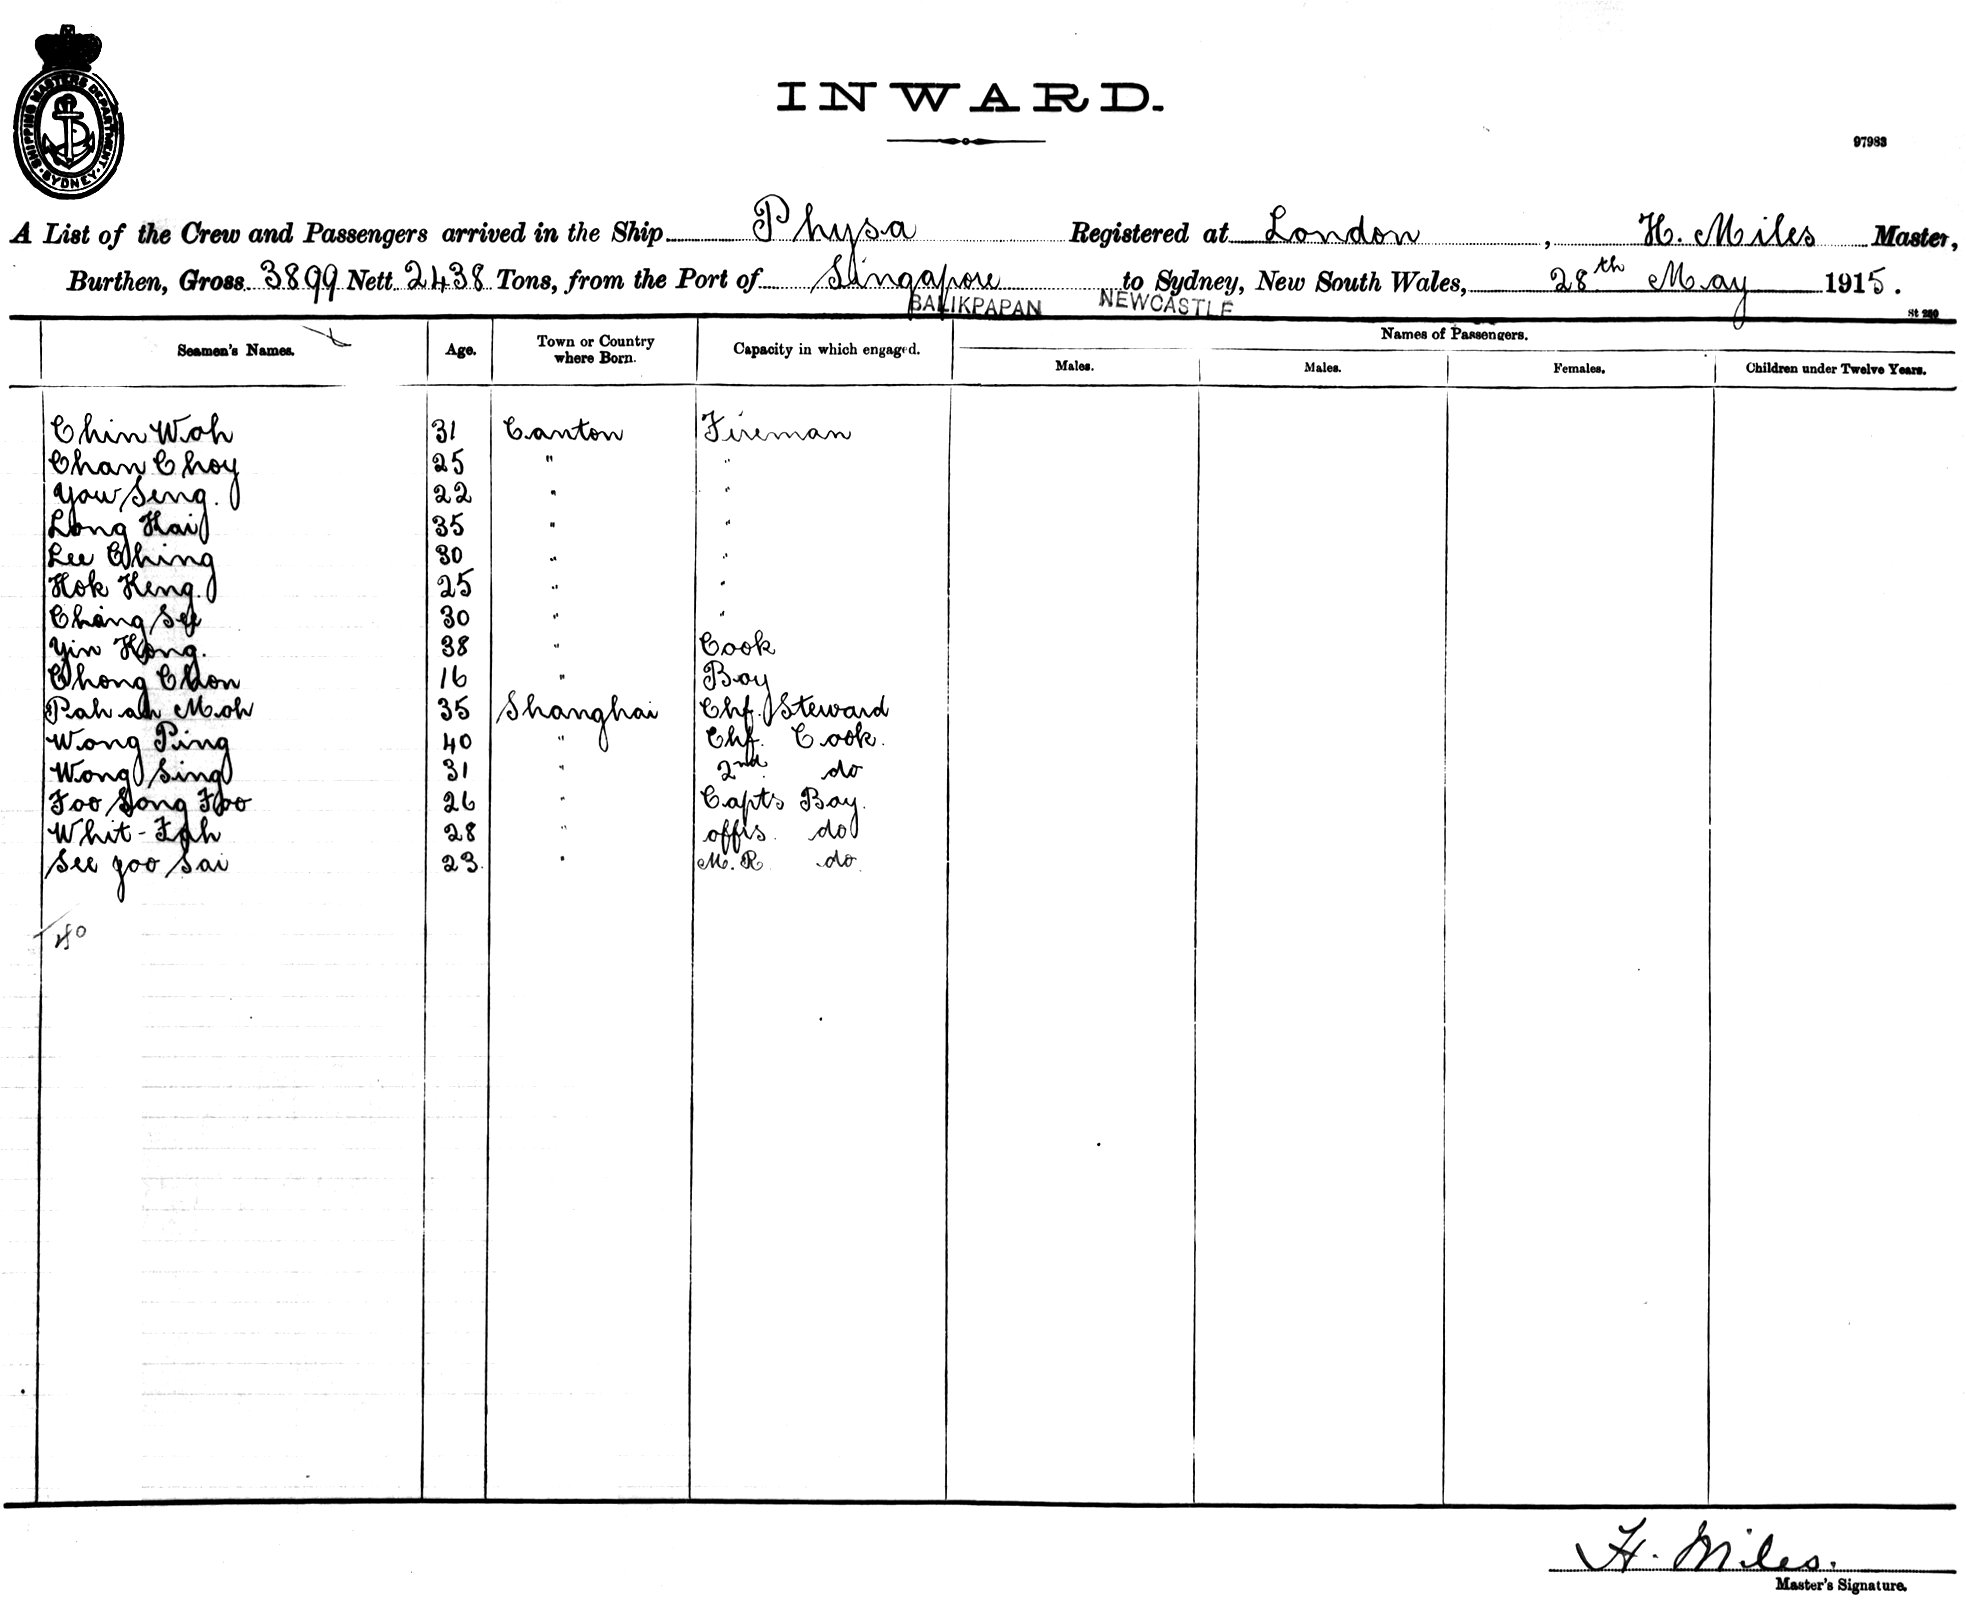 SHIPPING MASTERS DEPARTMENT · SYDNEY ·
INWARD.
97983
A List of the Crew and Passengers arrived in the Ship Physa Registered at London, H. Miles Master,
Burthen, Gross 3899 Nett 2438 Tons, from the Port of Singapore to Sydney, New South Wales, 28th May 1915.
BALIKPAPAN NEWCASTLE
St 280
Seamen's Names. Age. Town or Country where Born. Capacity in which engaged. Names of Passengers.
Males. Males. Females. Children under Twelve Years.
Chin Woh 31 Canton Fireman
Chan Choy 25 " "
Yow Seng. 22 " "
Long Hai 35 " "
Lee Ching 30 " "
Hok Heng. 25 " "
Chang See 30 " "
Yin Hong. 38 " Cook
Chong Choon 16 " Boy
Pah ah Moh 35 Shanghai Chf. Steward
Wong Ping 40 " Chf. Cook.
Wong Sing 31 " 2nd. do
Foo Song Foo 26 " Capts Boy.
Whit-Fah 28 " offis. do
See yoo Sai 23. " M.R. do.
H. Miles.
Master's Signature.